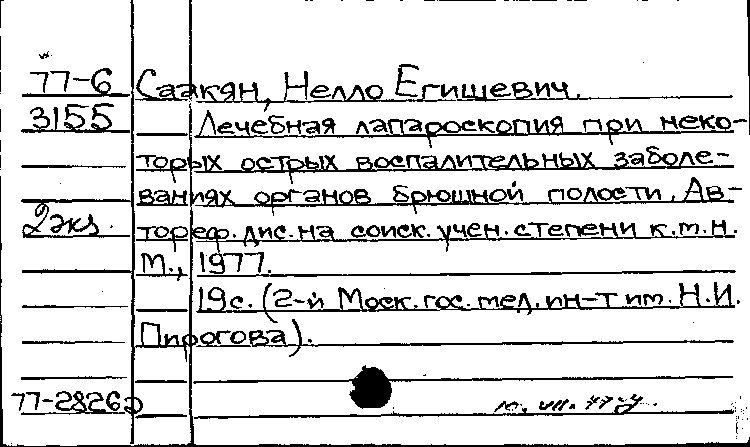 77-6 Саакян, Нелло Егишевич.
3155 Лечебная лапароскопия при неко-
торых острых воспалительных заболе-
ваниях органов брюшной полости. Ав-
2 экз. тореф. дис. на соиск. учен. степени к.м.н.
М., 1977.
19 с. (2-й Моск. гос. мед. ин-т им. Н.И.
Пирогова).
77-28262